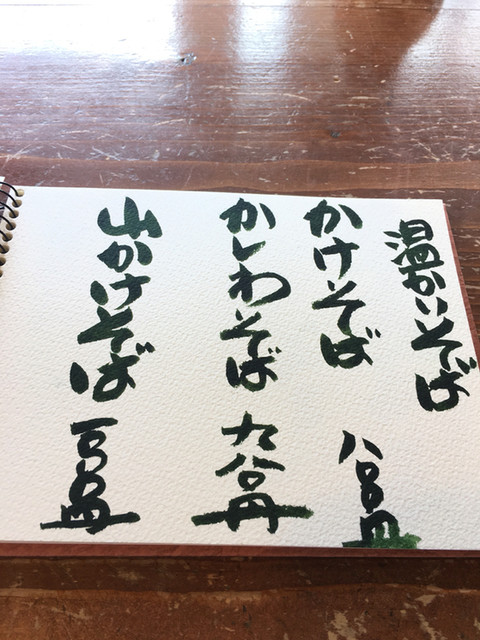 温かいそば
かけそば 八〇〇円
かしわそば 九八〇円
山かけそば